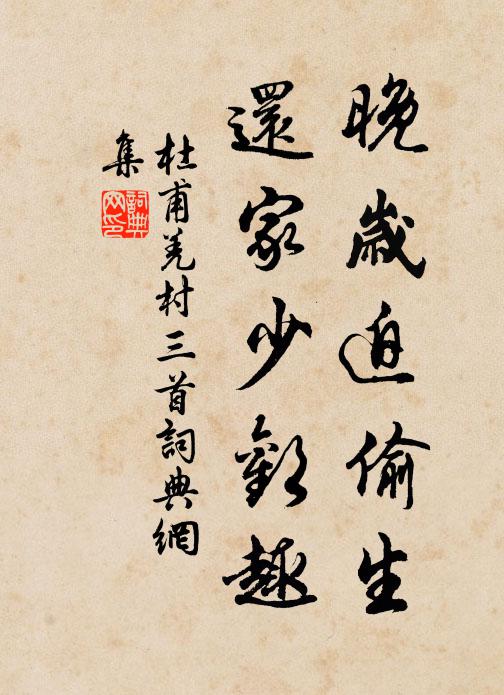 晚歲迫偷生
還家少歡趣
杜甫羌村三首詞典網
集
詞典
网印